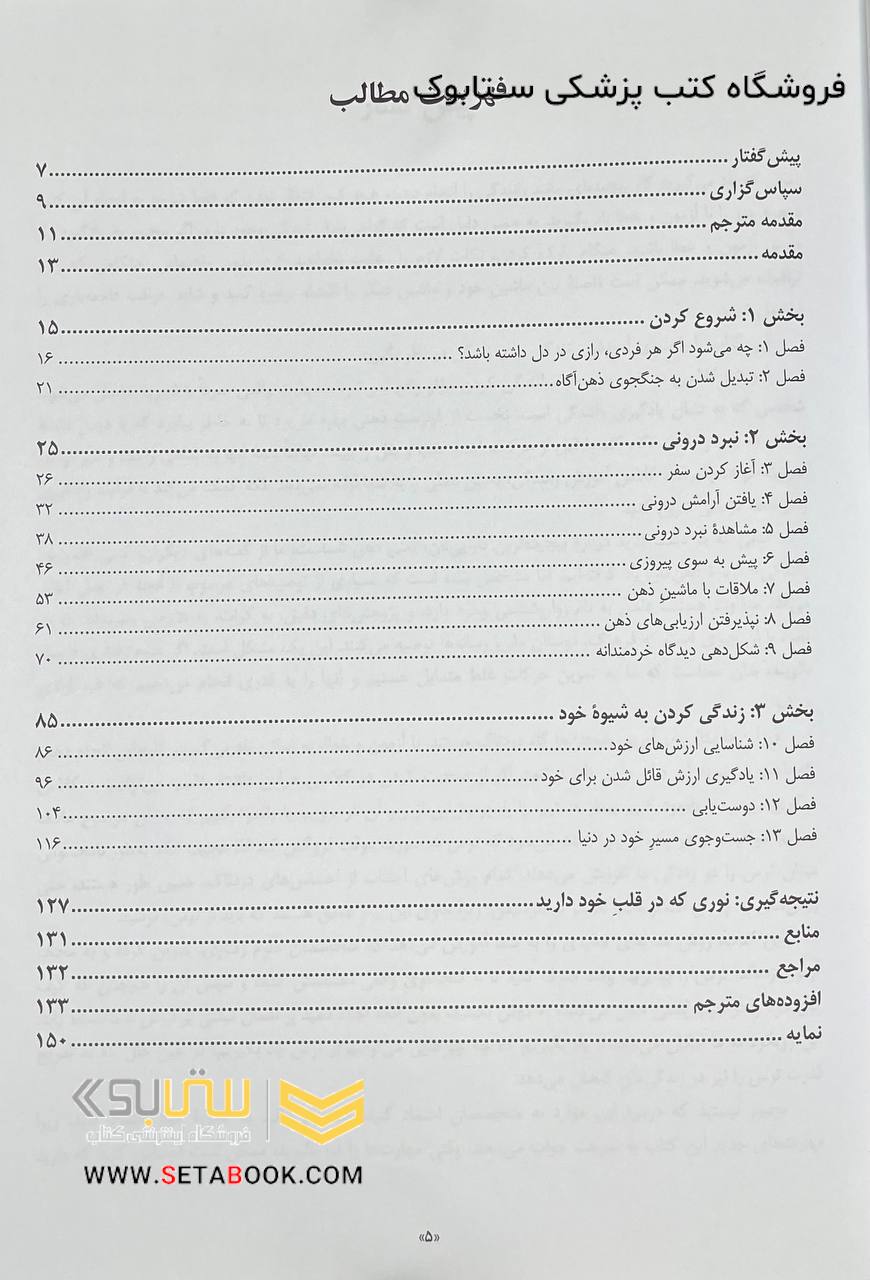 فروشگاه کتب پزشکی ستابوک
فهرست مطالب
پیش‌گفتار ........ ۷
سپاس‌گزاری ........ ۹
مقدمه مترجم ........ ۱۱
مقدمه ........ ۱۳
بخش ۱: شروع کردن ........ ۱۵
فصل ۱: چه می‌شود اگر هر فردی، رازی در دل داشته باشد؟ ........ ۱۶
فصل ۲: تبدیل شدن به جنگجوی ذهن‌آگاه ........ ۲۱
بخش ۲: نبرد درونی ........ ۲۵
فصل ۳: آغاز کردن سفر ........ ۲۶
فصل ۴: یافتن آرامش درونی ........ ۳۲
فصل ۵: مشاهدهٔ نبرد درونی ........ ۳۸
فصل ۶: پیش به سوی پیروزی ........ ۴۶
فصل ۷: ملاقات با ماشینِ ذهن ........ ۵۳
فصل ۸: نپذیرفتن ارزیابی‌های ذهن ........ ۶۱
فصل ۹: شکل‌دهی دیدگاه خردمندانه ........ ۷۰
بخش ۳: زندگی کردن به شیوهٔ خود ........ ۸۵
فصل ۱۰: شناسایی ارزش‌های خود ........ ۸۶
فصل ۱۱: یادگیری ارزش قائل شدن برای خود ........ ۹۶
فصل ۱۲: دوست‌یابی ........ ۱۰۴
فصل ۱۳: جست‌وجوی مسیرِ خود در دنیا ........ ۱۱۶
نتیجه‌گیری: نوری که در قلبِ خود دارید ........ ۱۲۷
منابع ........ ۱۳۱
مراجع ........ ۱۳۲
افزوده‌های مترجم ........ ۱۳۳
نمایه ........ ۱۵۰
ستابوک
فروشگاه اینترنتی کتاب
WWW.SETABOOK.COM
«۵»